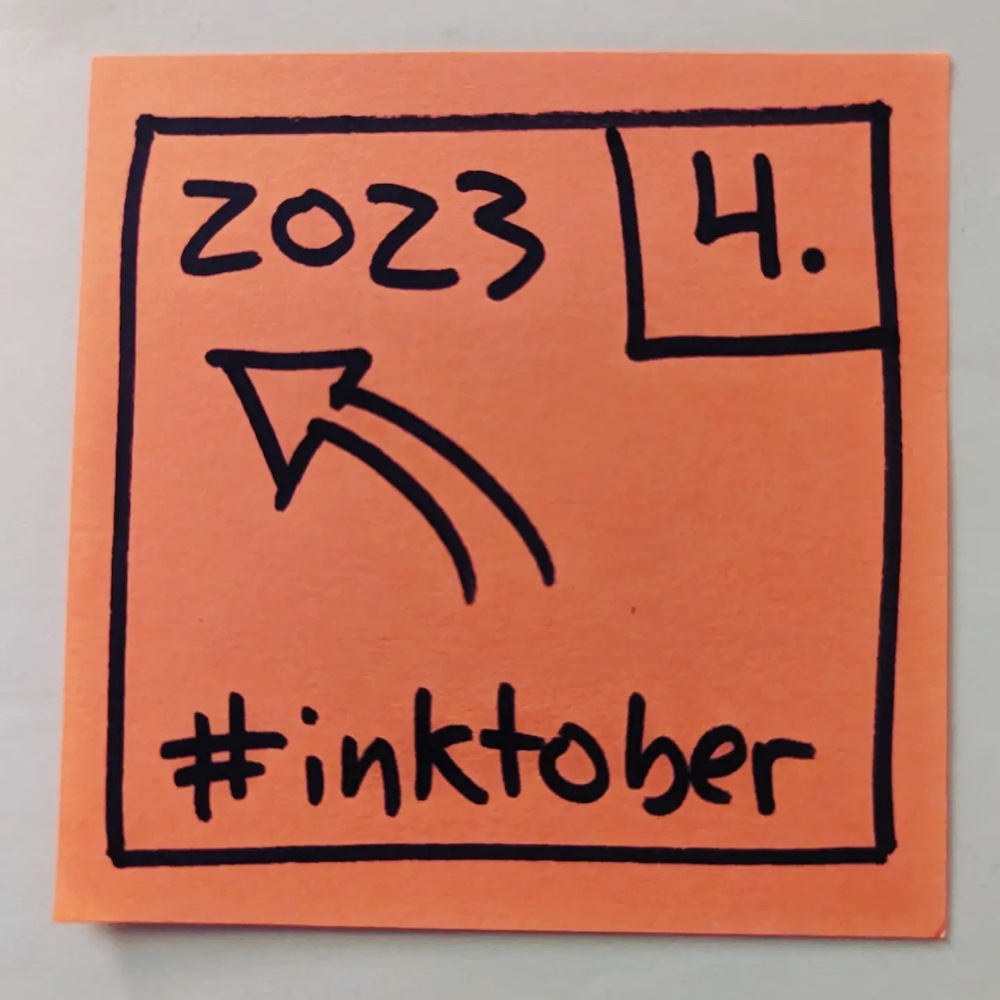 2023
4.
#inktober